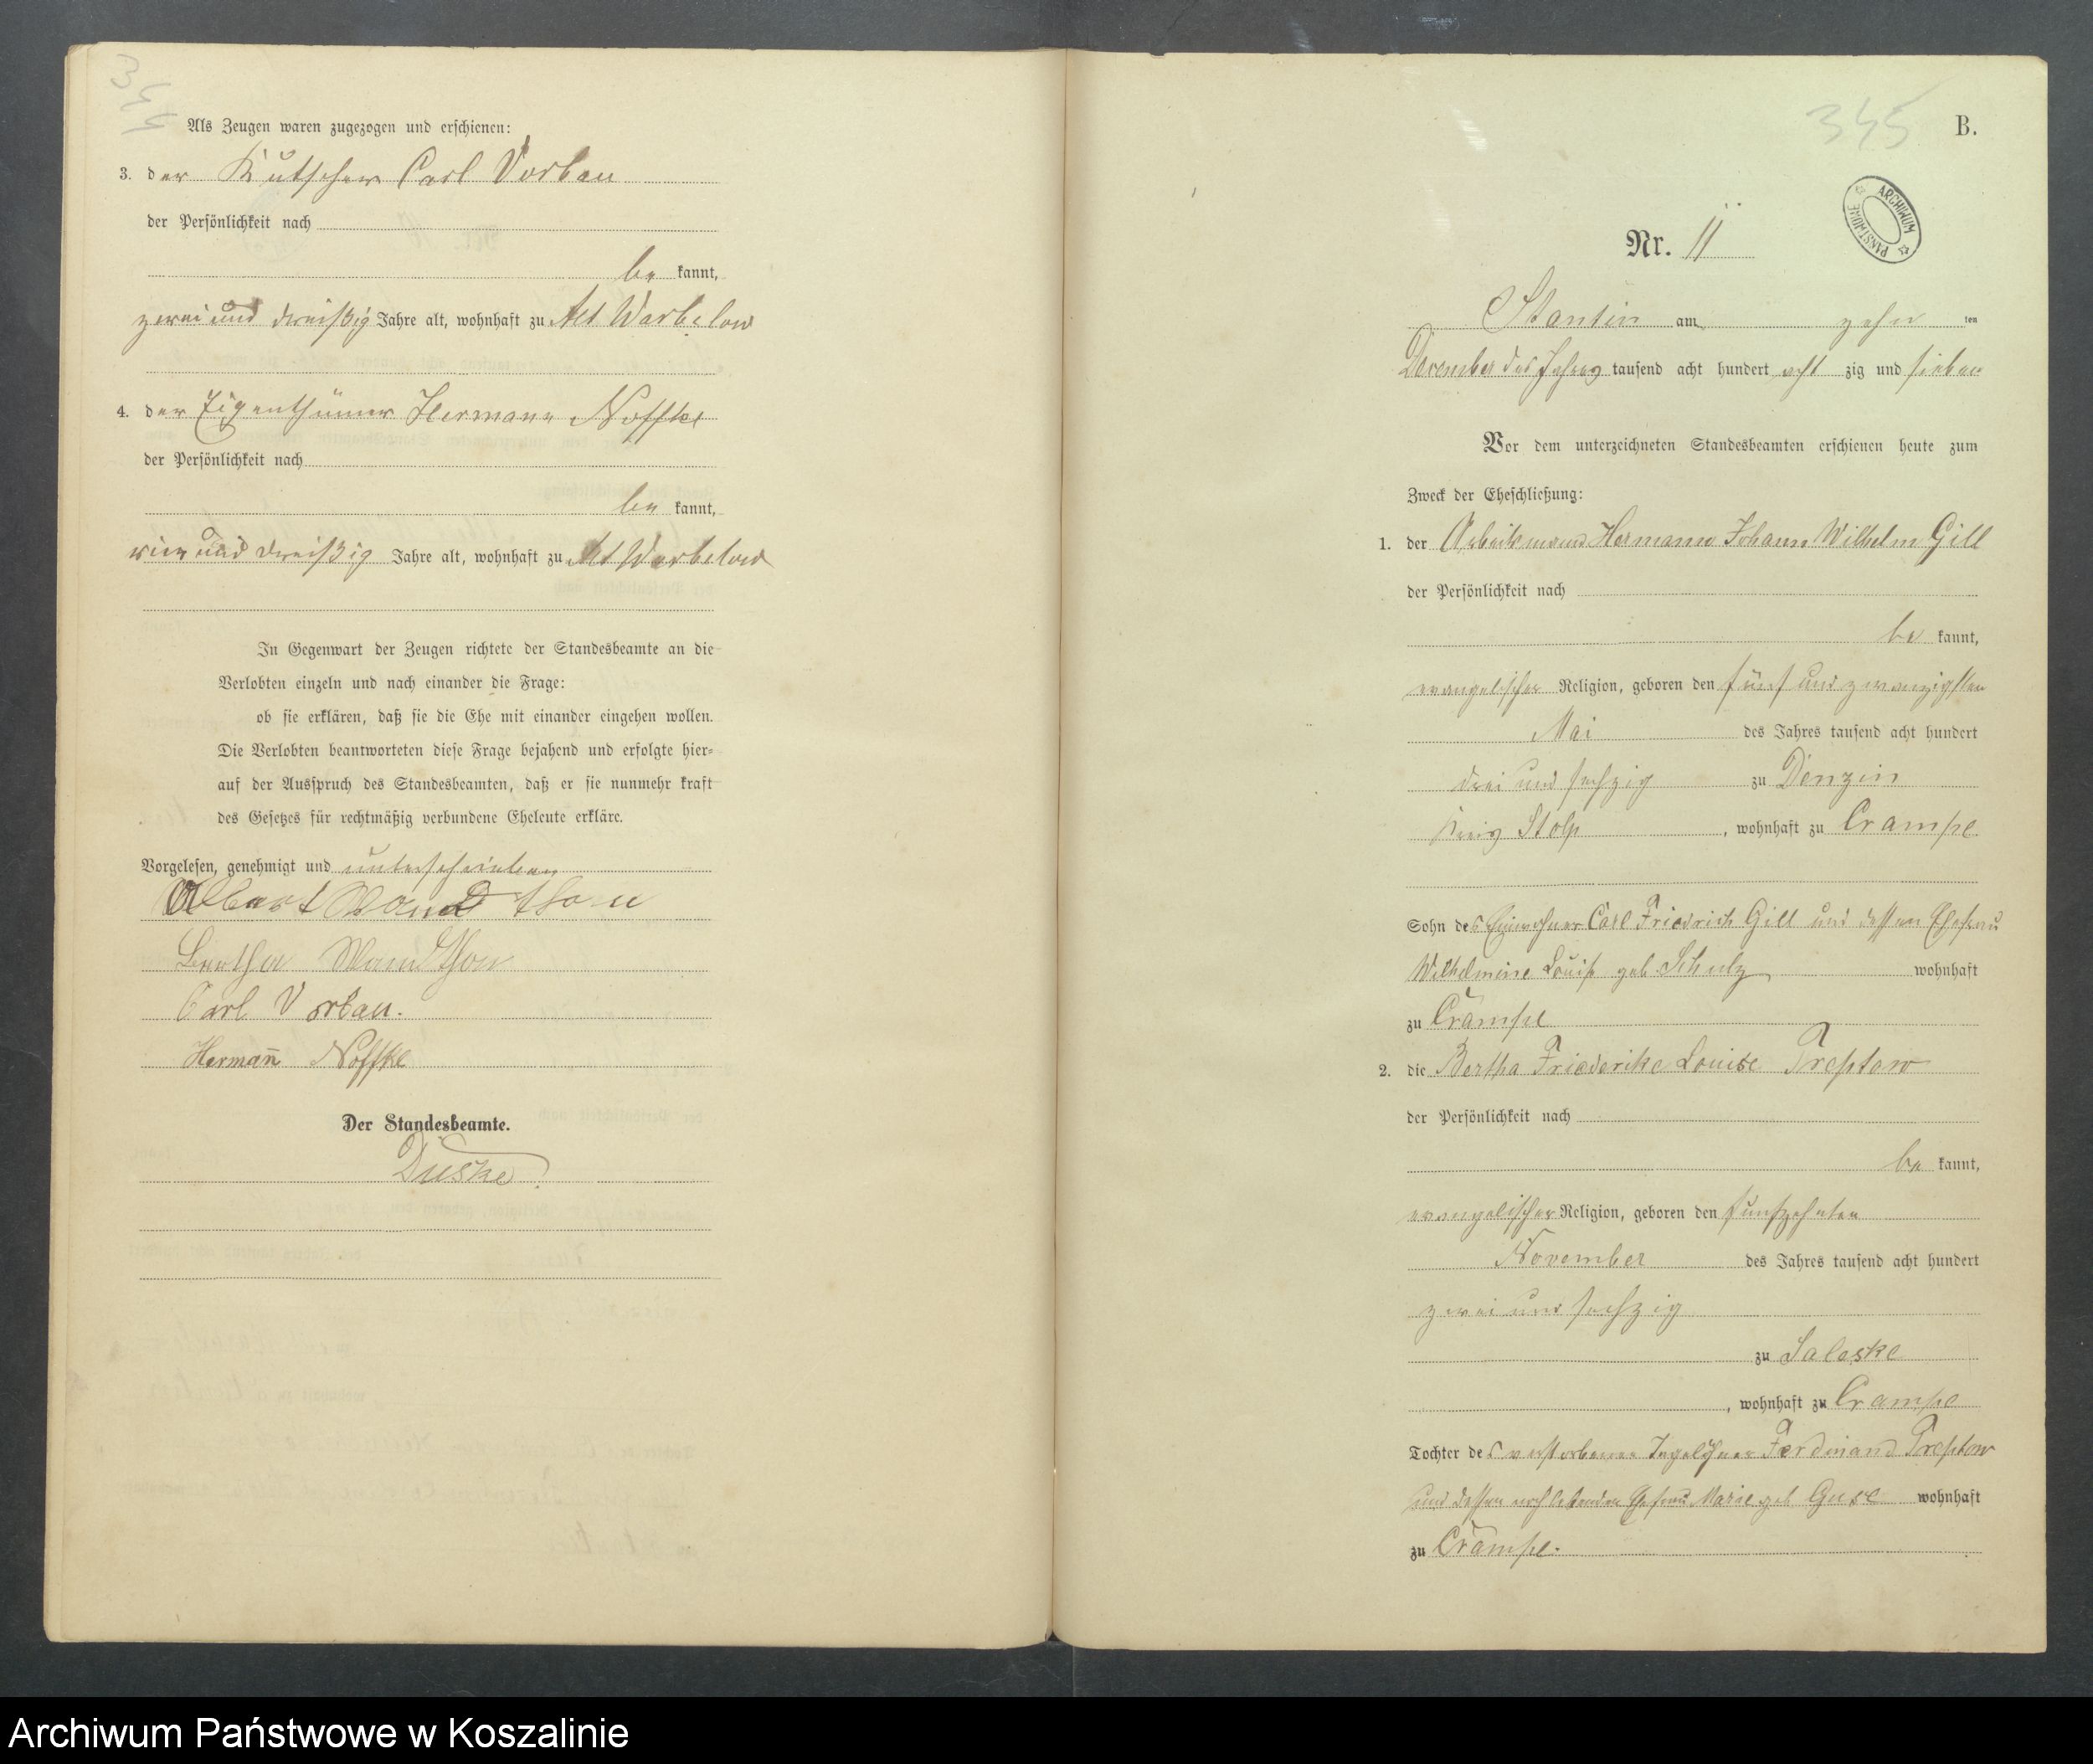 344
Als Zeugen waren zugezogen und erschienen:
3. der Kutscher Carl Vorbau
der Persönlichkeit nach
be kannt,
zwei und dreißig Jahre alt, wohnhaft zu Alt Warbelow
4. der Eigenthümer Hermann Noffke
der Persönlichkeit nach
be kannt,
vier und dreißig Jahre alt, wohnhaft zu Alt Warbelow
In Gegenwart der Zeugen richtete der Standesbeamte an die
Verlobten einzeln und nach einander die Frage:
ob sie erklären, daß sie die Ehe mit einander eingehen wollen.
Die Verlobten beantworteten diese Frage bejahend und erfolgte hier=
auf der Ausspruch des Standesbeamten, daß er sie nunmehr kraft
des Gesetzes für rechtmäßig verbundene Eheleute erkläre.
Vorgelesen, genehmigt und unterschrieben
Albert
Bertha
Carl Vorbau.
Herman̄ Noffke
Der Standesbeamte.
Duske.
345
B.
ARCHIWUM PAŃSTWOWE
Nr. 11
Stantin am zehn ten
December des Jahres tausend acht hundert acht zig und sieben
Vor dem unterzeichneten Standesbeamten erschienen heute zum
Zweck der Eheschließung:
1. der Arbeitsmann Hermann Johann Wilhelm Gill
der Persönlichkeit nach
be kannt,
evangelischer Religion, geboren den fünf und zwanzigsten
Mai des Jahres tausend acht hundert
drei und sechzig zu Denzin
Kreis Stolp, wohnhaft zu Crampe
Sohn des Einwohner Carl Friedrich Gill und dessen Ehefrau
Wilhelmine Louise geb. Schulz wohnhaft
zu Crampe
2. die Bertha Friederike Louise Treptow
der Persönlichkeit nach
be kannt,
evangelischer Religion, geboren den funfzehnten
November des Jahres tausend acht hundert
zwei und sechzig
zu Saleske
, wohnhaft zu Crampe
Tochter des verstorbenen Tagelöhner Ferdinand Treptow
und dessen noch lebenden Ehefrau Marie geb. Guse wohnhaft
zu Crampe.
Archiwum Państwowe w Koszalinie